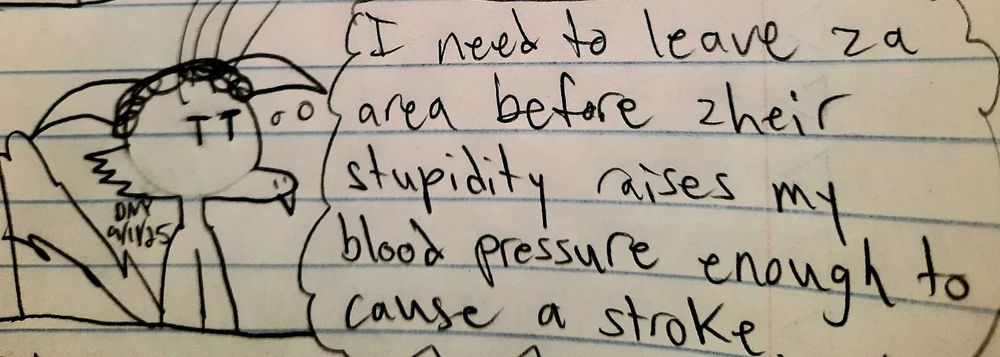 (I need to leave za
area before zheir
stupidity raises my
blood pressure enough to
cause a stroke
TT
DNY
9/1/25